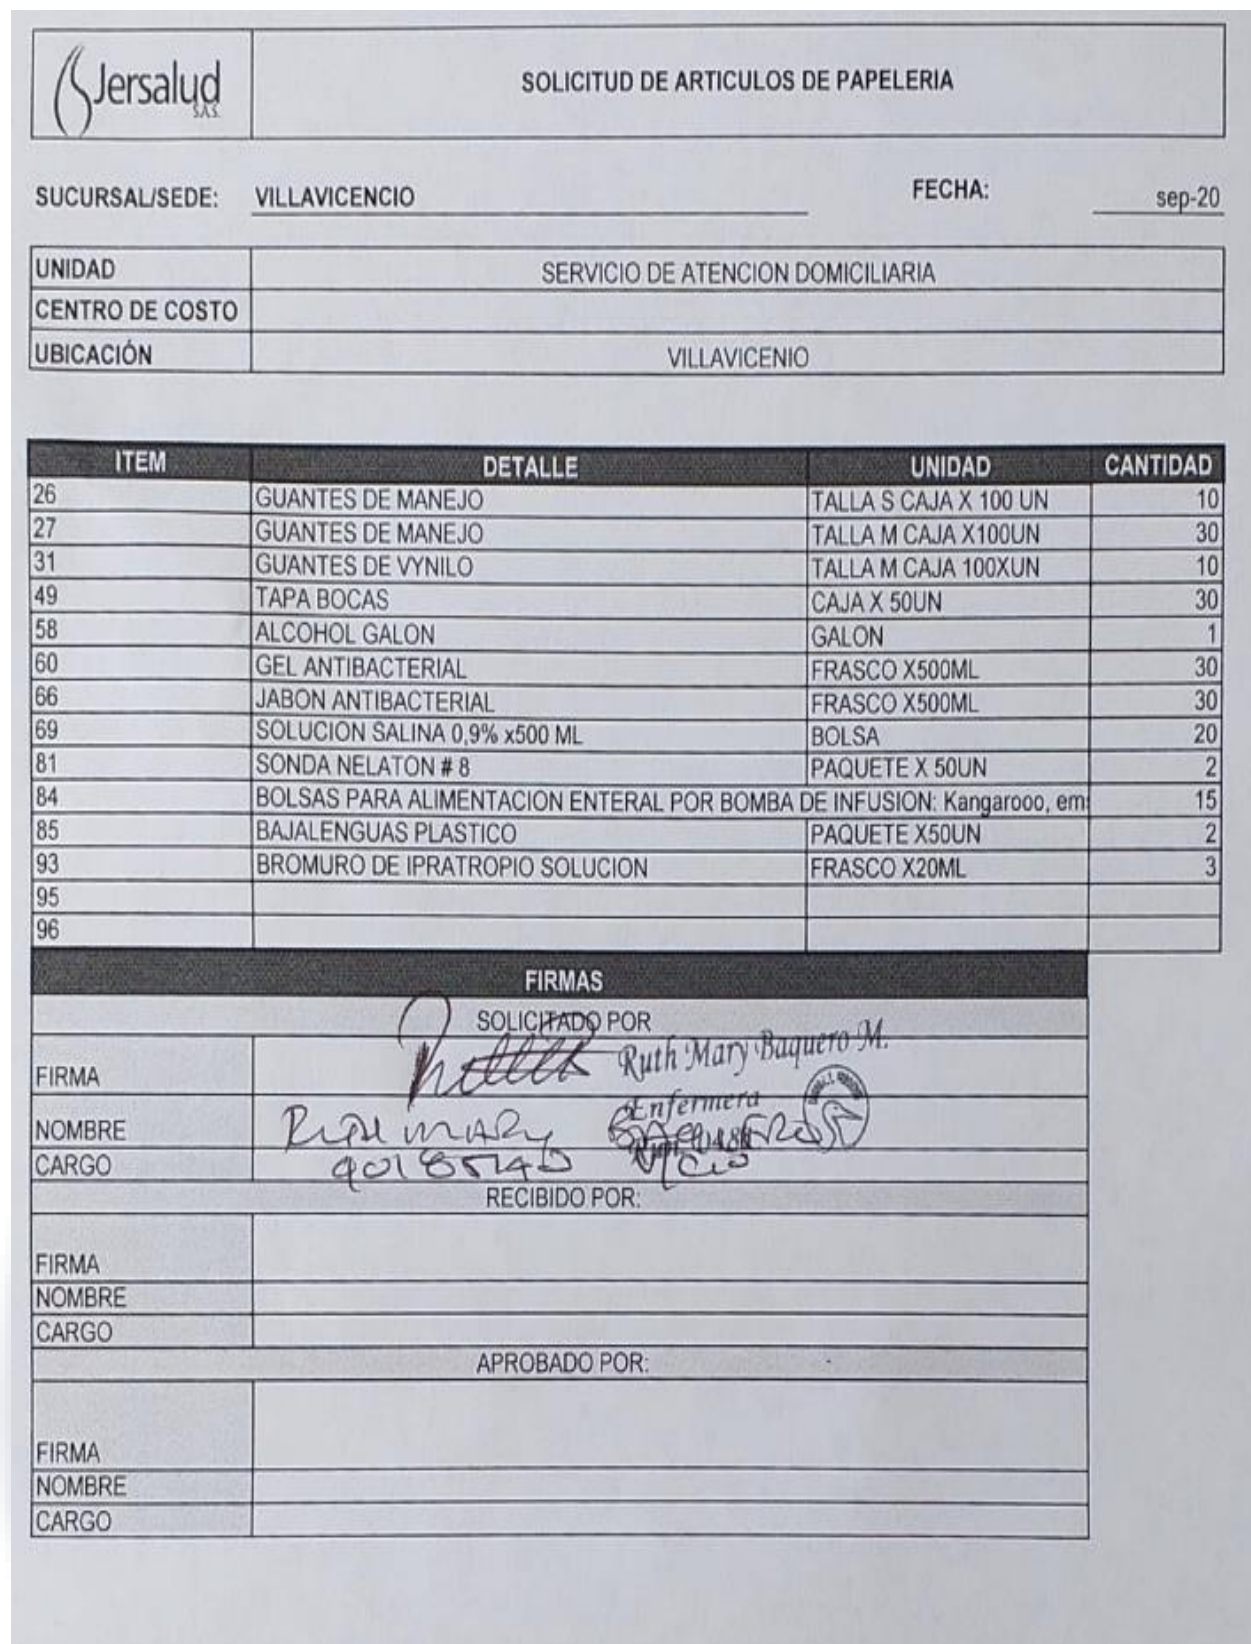 Jersalud
S.A.S.
SOLICITUD DE ARTICULOS DE PAPELERIA
SUCURSAL/SEDE: VILLAVICENCIO FECHA: sep-20
UNIDAD SERVICIO DE ATENCION DOMICILIARIA
CENTRO DE COSTO
UBICACIÓN VILLAVICENIO
ITEM DETALLE UNIDAD CANTIDAD
26 GUANTES DE MANEJO TALLA S CAJA X 100 UN 10
27 GUANTES DE MANEJO TALLA M CAJA X100UN 30
31 GUANTES DE VYNILO TALLA M CAJA 100XUN 10
49 TAPA BOCAS CAJA X 50UN 30
58 ALCOHOL GALON GALON 1
60 GEL ANTIBACTERIAL FRASCO X500ML 30
66 JABON ANTIBACTERIAL FRASCO X500ML 30
69 SOLUCION SALINA 0,9% x500 ML BOLSA 20
81 SONDA NELATON # 8 PAQUETE X 50UN 2
84 BOLSAS PARA ALIMENTACION ENTERAL POR BOMBA DE INFUSION: Kangarooo, em 15
85 BAJALENGUAS PLASTICO PAQUETE X50UN 2
93 BROMURO DE IPRATROPIO SOLUCION FRASCO X20ML 3
95
96
FIRMAS
SOLICITADO POR
FIRMA Ruth Mary Baquero M.
Enfermera
NOMBRE MARY BAQUERO
CARGO
RECIBIDO POR:
FIRMA
NOMBRE
CARGO
APROBADO POR:
FIRMA
NOMBRE
CARGO